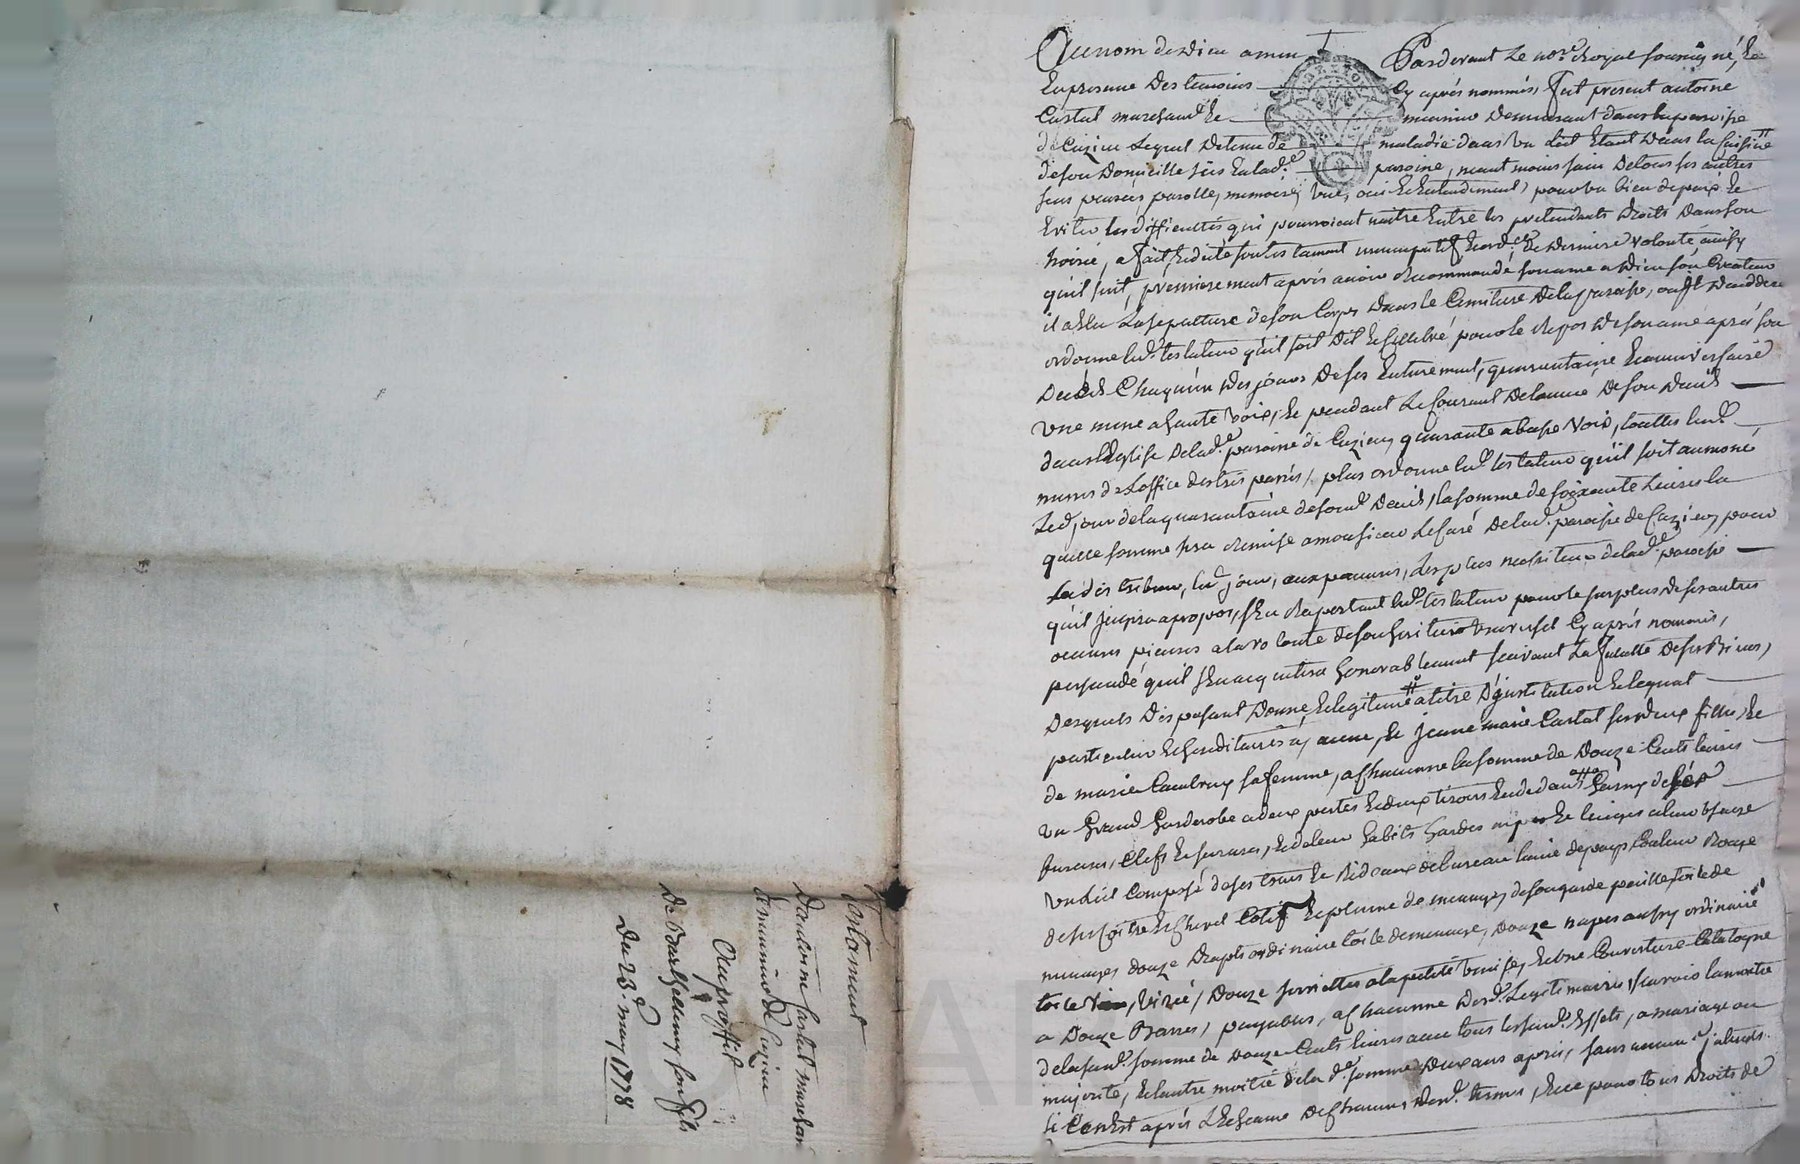 Testament
D'antoine Castal marchan
et munnier de Cuzieu
Au proffit
De Barthelemy son fils
Du 23e may 1778
Au nom de Dieu amen Pardevant Le nore Royal soussigné, Et
En presence Des temoins Cy aprés nommés, fut present antoine
Castal marchand Et munnier Demeurant dans la paroisse
de Cuzieu Lequel Detenu de maladie dans un Lit Etant Dans la cuisine
de son Domicille sis En lade paroisse, neant moins sain De tous ses autres
sens pensées, parolle, memoire, vue, ouie Et Entendement, pour un bien de paix Et
Eviter les difficultés qui pourroient naitre Entre les pretendants Droits Dans son
hoirie, a fait, Et dicté son testament nuncupatif Et ordce De Derniere volonté, ainsy
qu'il suit, premierement aprés avoir Recommandé son ame a Dieu son Createur
il a Elu La sepulture de son Corps Dans le Cimitiere De la paroisse, ou il Decedera
ordonne led. testateur qu'il soit Dit Et Cellebré pour le Repos De son ame aprés son
Decés Chaqu'un Des jours De ses Enterement, quarantaine Et anniversaire
Une messe a haute Voix, Et pendant Le Courant De l'année De son Decés
dans L'Eglise De lade paroisse de Cuzieu quarante a basse Voix, touttes lesd.
messes de L'office des trés passés, plus ordonne led. testateur qu'il soit aumoné
Led. jour de la quarantaine de sond. Decés, la somme de soixante Livres la
quelle somme sera Remise a monsieur Le Curé De lad. paroisse de Cuzieu, pour
La distribuer, led. jour, aux pauvres, Les plus necessiteux De lade paroisse
qu'il jugera apropos, s'En Raportant led. testateur pour le surplus De ses autres
oeuvres pieuses a la vo lonté de son heritier universel Cy aprés nommé,
persuadé qu'il s'En acquittera honorablement suivant La faculté De ses Biens,
Desquels Disposant Donne, Et legitime a titre D'institution Et legnat
particulier Et hereditaire a, anne, Et jeanne marie Castal ses deux filles, Et
de marie sa femme, a Chacune la somme de Douze Cents livres
un Grand Garderobe a deux portes Et deux tiroirs En dedans Garny de ses
ferrures, Clefs Et serrures, Et de leur habits hardes nipes Et linges a leur usage
un Lit Composé de ses tours Et Rideaux de laine de pays Couleur Rouge
de sa Coitre Et Chevet Cotif Et plume de menage, de sa garde paille toile de
menage, douze Draps ordinaire toile de menage, Douze napes aussy ordinaire
toile Douze serviettes a la petite Venise, Et Une Couverture Catalogne
a Douze Barres, payables, a Chacune Desd. Legitimaires, sçavoir la moitié
de la susd. somme de Douze Cents livres avec tous les susd. Effets, a mariage ou
majorité, Et l'autre moitié de la de somme Deux ans aprés, sans aucun interests
si Ce n'Est aprés L'Echeance De Chacuns Desd. termes, Et ce pour tous Droits de